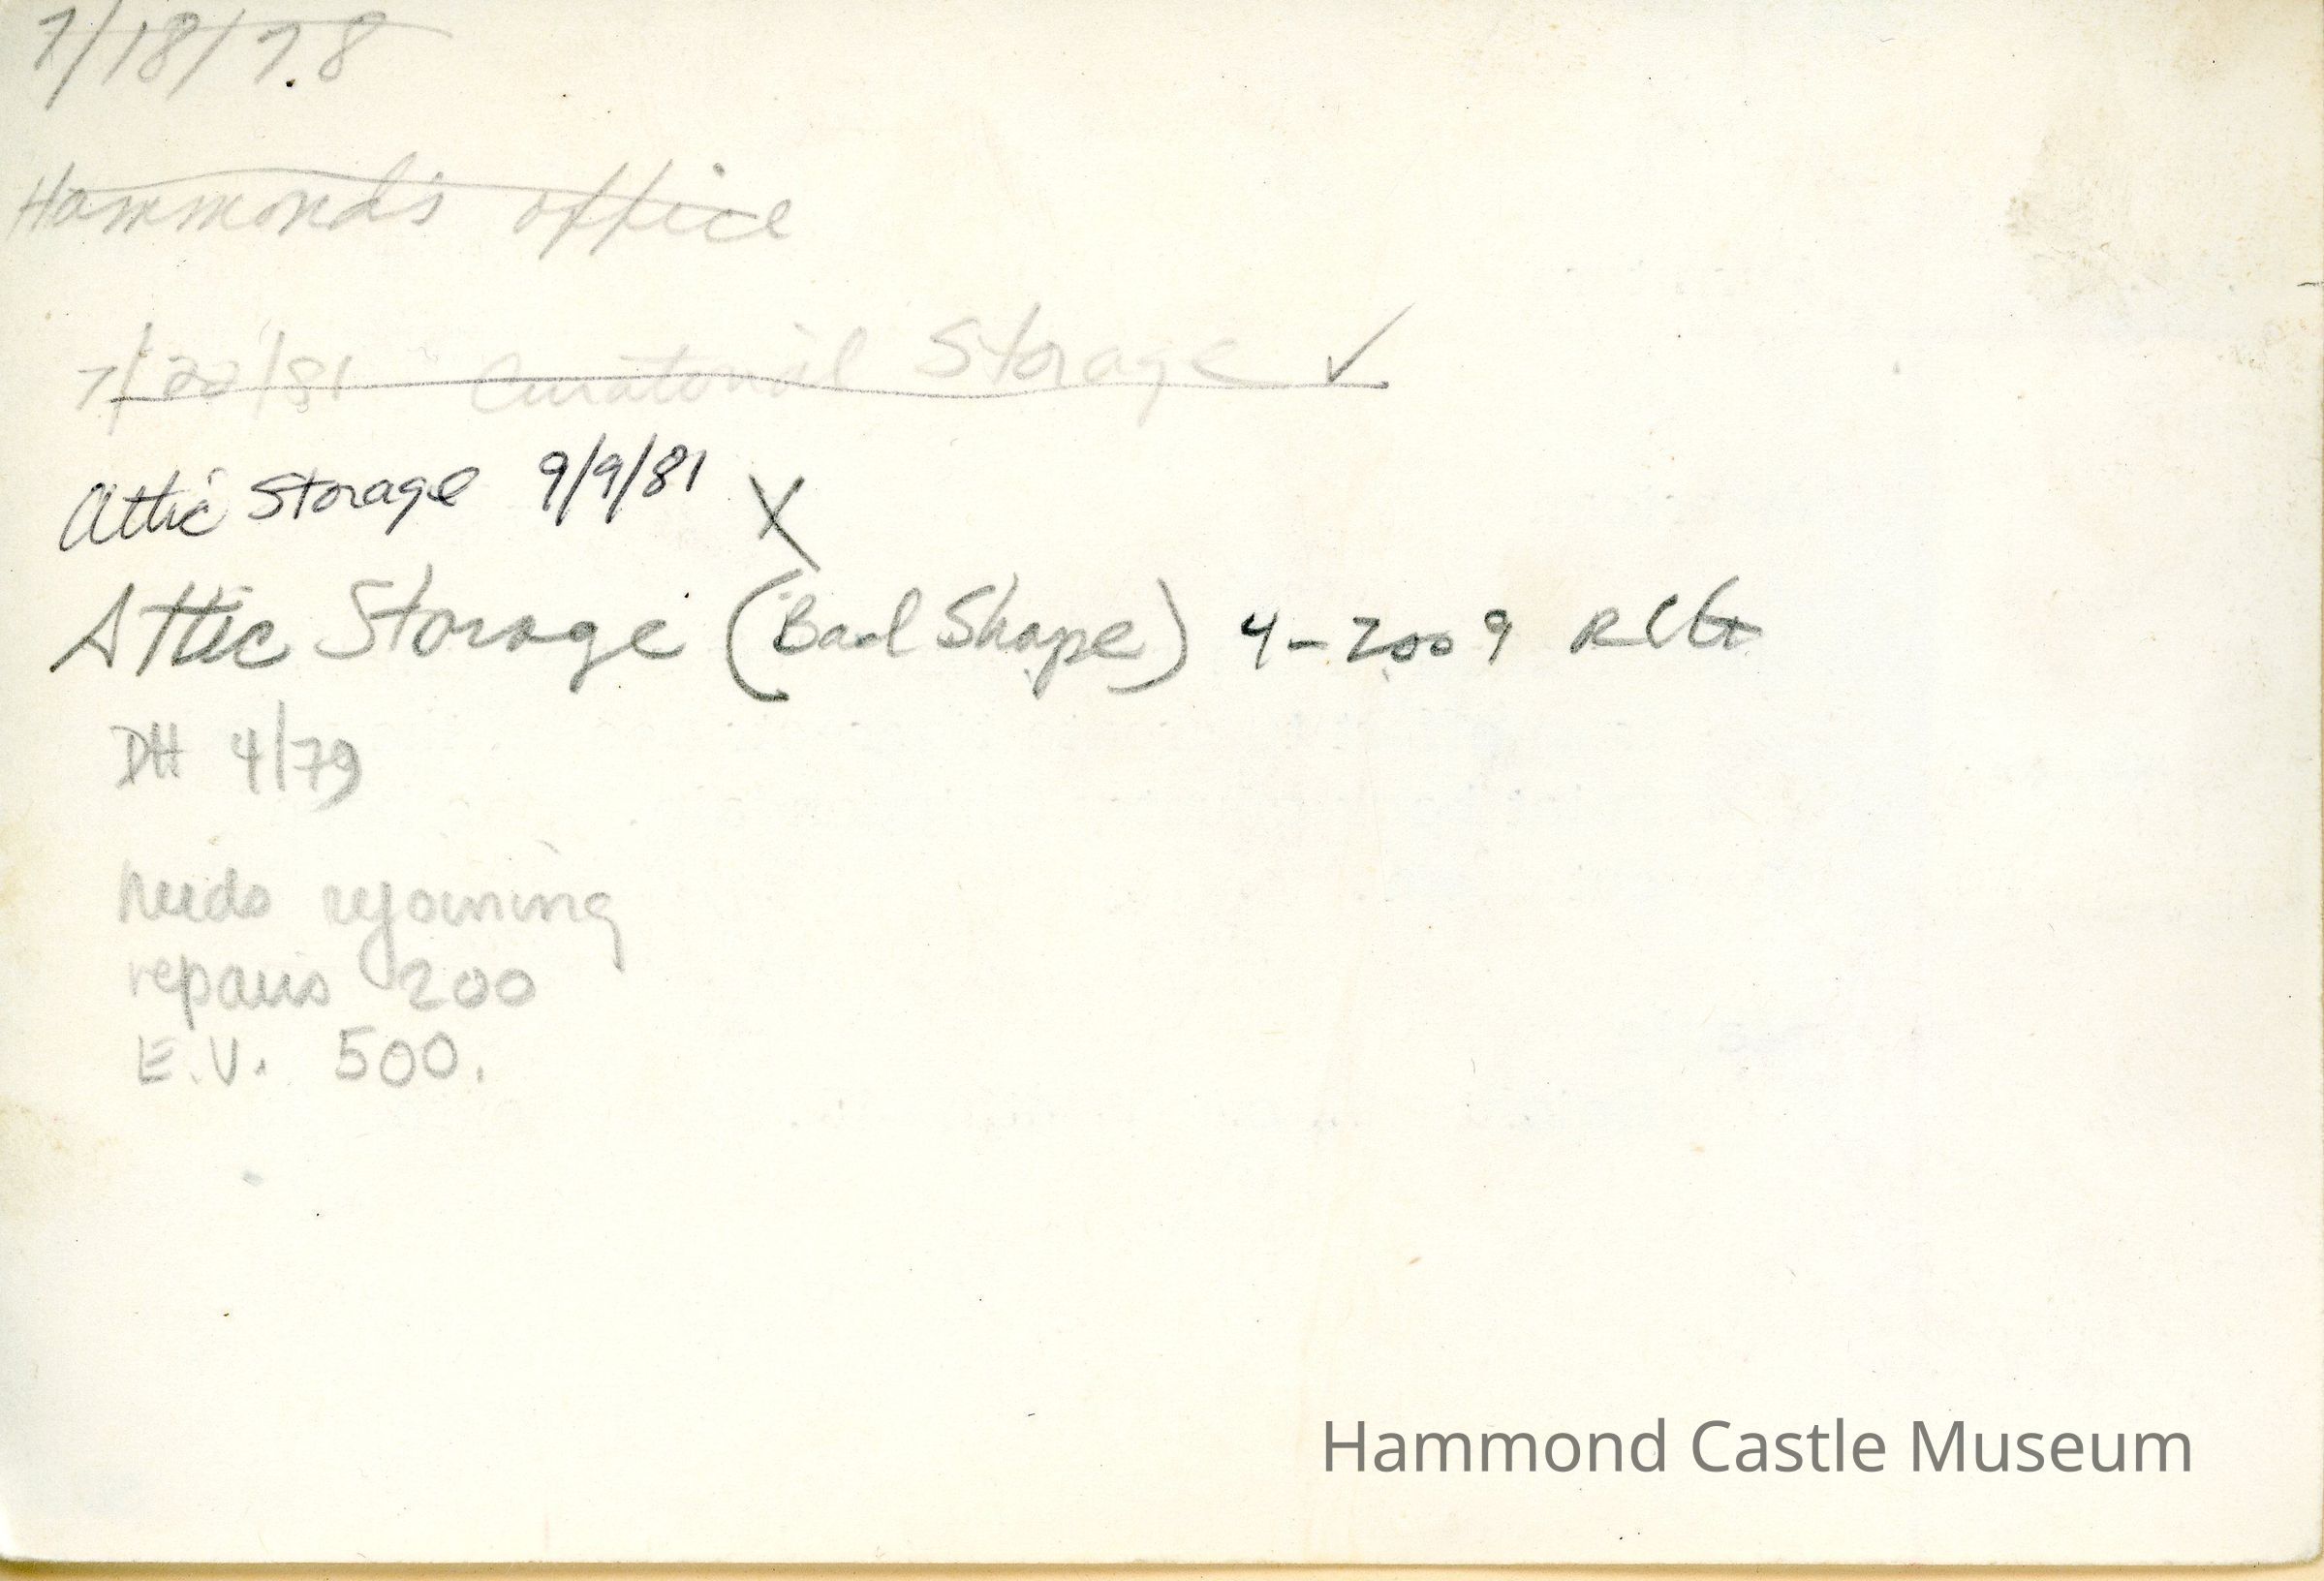 7/18/78
Hammond's office
7/22/81 Curatorial Storage ✓
Attic Storage 9/9/81 X
Attic Storage (Bad Shape) 4-2009
DH 4/79
needs rejoining
repairs 200
E.V. 500.
Hammond Castle Museum